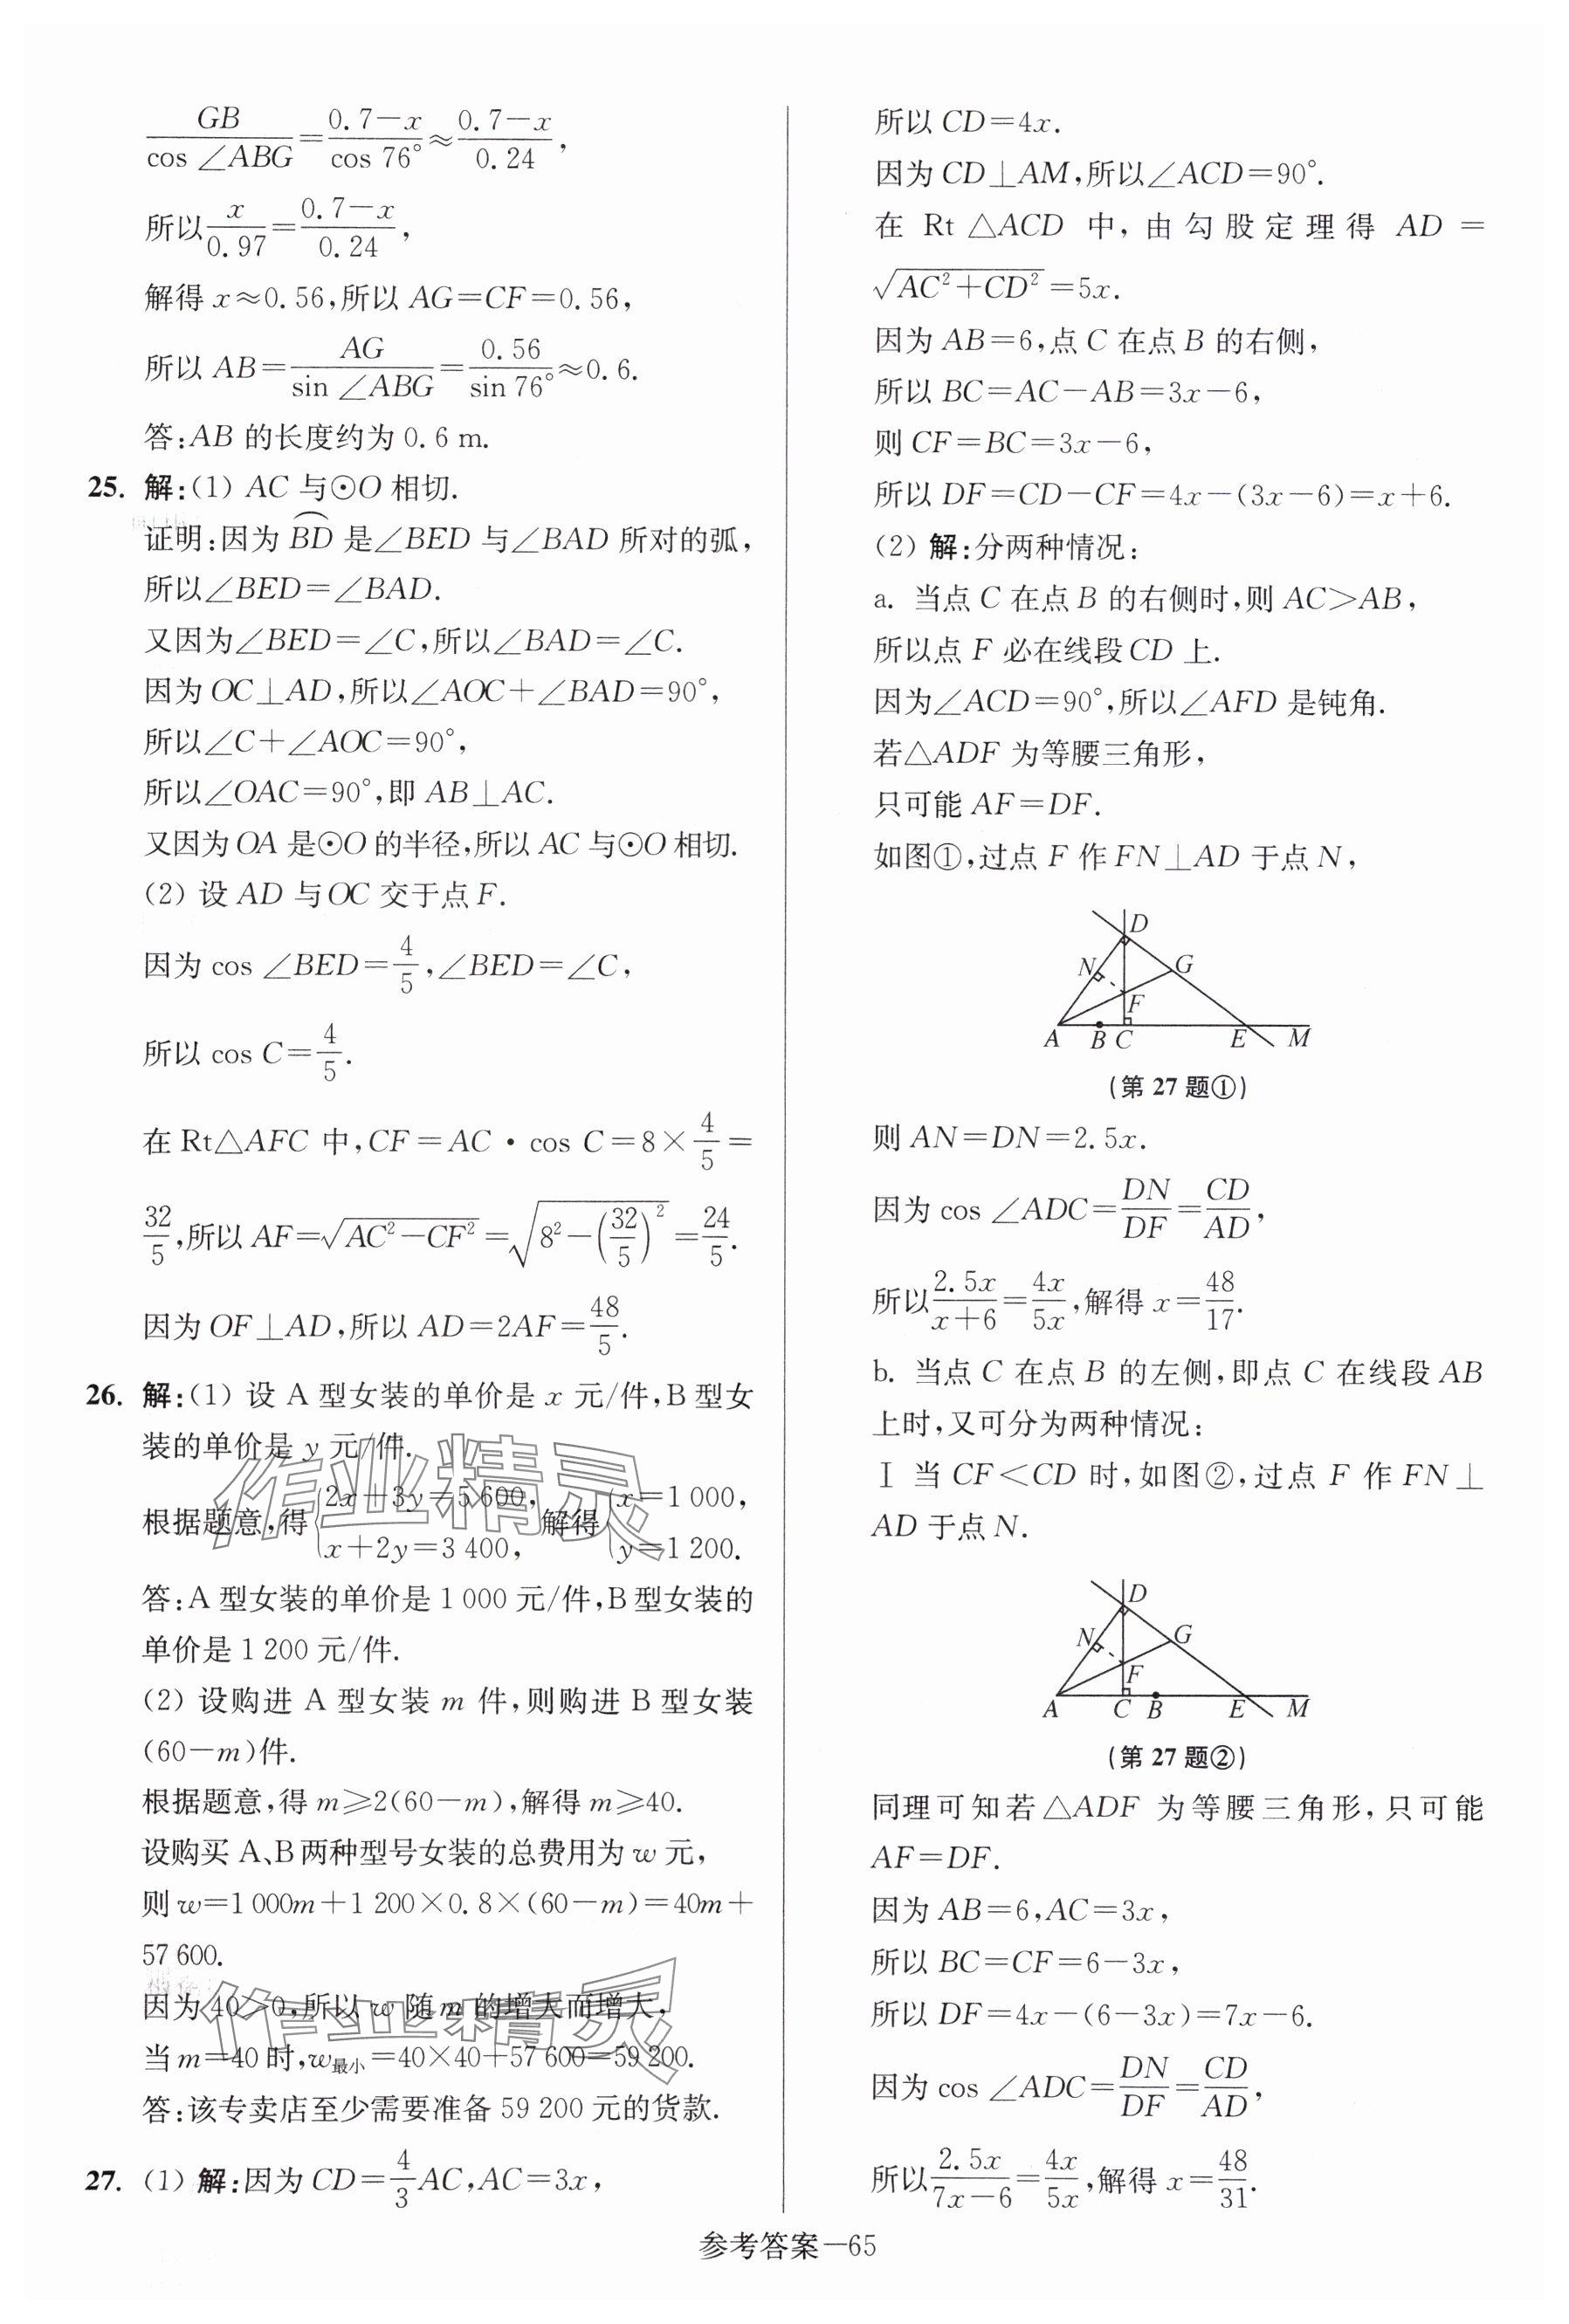 GB/cos ∠ABG=0.7-x/cos 76°≈0.7-x/0.24,
所以x/0.97=0.7-x/0.24,
解得 x≈0.56,所以 AG=CF=0.56,
所以 AB=AG/sin ∠ABG=0.56/sin 76°≈0.6.
答:AB 的长度约为 0.6 m.
25. 解:(1) AC 与⊙O 相切.
证明:因为 BD 是∠BED 与∠BAD 所对的弧,
所以∠BED=∠BAD.
又因为∠BED=∠C,所以∠BAD=∠C.
因为 OC⊥AD,所以∠AOC+∠BAD=90°,
所以∠C+∠AOC=90°,
所以∠OAC=90°,即 AB⊥AC.
又因为 OA 是⊙O 的半径,所以 AC 与⊙O 相切.
(2) 设 AD 与 OC 交于点 F.
因为 cos ∠BED=4/5,∠BED=∠C,
所以 cos C=4/5.
在 Rt△AFC 中,CF=AC·cos C=8×4/5=
32/5,所以 AF=√(AC²-CF²)=√(8²-(32/5)²)=24/5.
因为 OF⊥AD,所以 AD=2AF=48/5.
26. 解:(1) 设 A 型女装的单价是 x 元/件,B 型女
装的单价是 y 元/件.
根据题意,得{2x+3y=5 600, x+2y=3 400,解得{x=1 000, y=1 200.
答:A 型女装的单价是 1 000 元/件,B 型女装的
单价是 1 200 元/件.
(2) 设购进 A 型女装 m 件,则购进 B 型女装
(60-m)件.
根据题意,得 m≥2(60-m),解得 m≥40.
设购买 A、B两种型号女装的总费用为 w 元,
则 w=1 000m+1 200×0.8×(60-m)=40m+
57 600.
因为 40>0,所以 w 随 m 的增大而增大,
当 m=40 时,w最小=40×40+57 600=59 200.
答:该专卖店至少需要准备 59 200 元的货款.
27. (1) 解:因为 CD=4/3AC,AC=3x,
所以 CD=4x.
因为 CD⊥AM,所以∠ACD=90°.
在 Rt △ACD 中,由勾股定理得 AD=
√(AC²+CD²)=5x.
因为 AB=6,点 C 在点 B 的右侧,
所以 BC=AC-AB=3x-6,
则 CF=BC=3x-6,
所以 DF=CD-CF=4x-(3x-6)=x+6.
(2) 解:分两种情况:
a. 当点 C 在点 B 的右侧时,则 AC>AB,
所以点 F 必在线段 CD 上.
因为∠ACD=90°,所以∠AFD 是钝角.
若△ADF 为等腰三角形,
只可能 AF=DF.
如图①,过点 F 作 FN⊥AD 于点 N,
D
N G
F
A B C E M
(第 27 题①)
则 AN=DN=2.5x.
因为 cos ∠ADC=DN/DF=CD/AD,
所以2.5x/x+6=4x/5x,解得 x=48/17.
b. 当点 C 在点 B 的左侧,即点 C 在线段 AB
上时,又可分为两种情况:
Ⅰ 当 CF<CD 时,如图②,过点 F 作 FN⊥
AD 于点 N.
D
N G
F
A C B E M
(第 27 题②)
同理可知若△ADF 为等腰三角形,只可能
AF=DF.
因为 AB=6,AC=3x,
所以 BC=CF=6-3x,
所以 DF=4x-(6-3x)=7x-6.
因为 cos ∠ADC=DN/DF=CD/AD,
所以2.5x/7x-6=4x/5x,解得 x=48/31.
作业精灵
作业精灵
参考答案—65